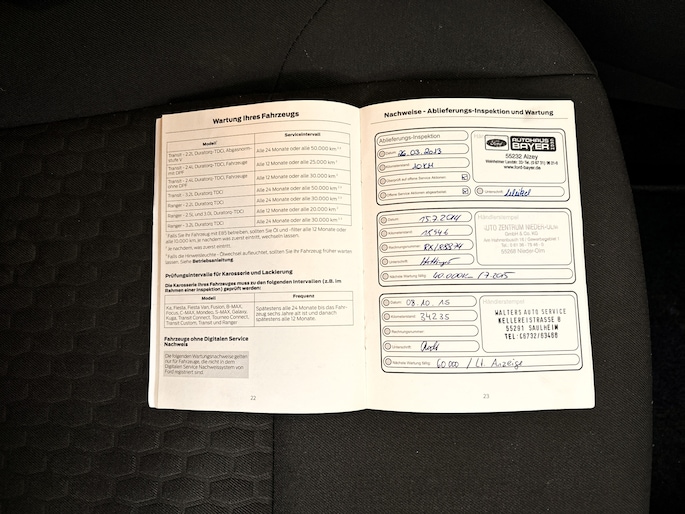 Wartung Ihres Fahrzeugs
Modell Serviceintervall
Transit - 2.2L Duratorq-TDCi, Abgasnorm-stufe V Alle 24 Monate oder alle 50.000 km
Transit - 2.4L Duratorq-TDCi, Fahrzeuge mit DPF Alle 12 Monate oder alle 25.000 km
Transit - 2.4L Duratorq-TDCi, Fahrzeuge ohne DPF Alle 12 Monate oder alle 30.000 km
Transit - 3.2L Duratorq-TDCi Alle 24 Monate oder alle 50.000 km
Ranger - 2.2L Duratorq-TDCi Alle 24 Monate oder alle 30.000 km
Ranger - 2.5L und 3.0L Duratorq-TDCi Alle 12 Monate oder alle 20.000 km
Ranger - 3.2L Duratorq-TDCi Alle 24 Monate oder alle 30.000 km
Falls Sie Ihr Fahrzeug mit E85 betreiben, sollten Sie Öl und -filter alle 12 Monate oder
alle 10.000 km je nachdem was zuerst eintritt, wechseln lassen.
Je nachdem, was zuerst eintritt.
Falls die Hinweisleuchte - Ölwechsel aufleuchtet, sollten Sie Ihr Fahrzeug früher warten
lassen. Siehe Betriebsanleitung
Prüfungsintervalle für Karosserie und Lackierung
Die Karosserie Ihres Fahrzeuges muss zu den folgenden Intervallen (z.B. im
Rahmen einer Inspektion) geprüft werden:
Modell Frequenz
Ka, Fiesta, Fiesta Van, Fusion, B-MAX,
Focus, C-MAX, Mondeo, S-MAX, Galaxy,
Kuga, Transit Connect, Tourneo Connect,
Transit Custom, Transit und Ranger
Spätestens alle 24 Monate bis das Fahr-
zeug sechs Jahre alt ist und danach
spätestens alle 12 Monate.
Fahrzeuge ohne Digitalen Service
Nachweis
Die folgenden Wartungsnachweise gelten
nur für Fahrzeuge, die nicht in dem
Digitalen Service Nachweissystem von
Ford registriert sind.
22
Nachweise - Ablieferungs-Inspektion und Wartung
Ablieferungs-Inspektion
Datum 06.03.2013
Kilometerstand 10 KM
Überprüft auf offene Service Aktionen
Offene Service Aktionen abgearbeitet
Unterschrift
Ford AUTOHAUS BAYER
55232 Alzey
www.ford-bayer.de
Datum 15.7.2014
Kilometerstand 15446
Rechnungsnummer
Unterschrift
Nächste Wartung fällig 60.000K
Händlerstempel
AUTO ZENTRUM NIEDER-OLM
GmbH & Co. KG
55268 Nieder-Olm
Datum 08.10 15
Kilometerstand 34235
Rechnungsnummer
Unterschrift
Nächste Wartung fällig 60 000 / Lt. Anzeige
Händlerstempel
WALTERS AUTO SERVICE
KELLEREISTRASSE 8
55291 SAULHEIM
TEL:06732/63466
23